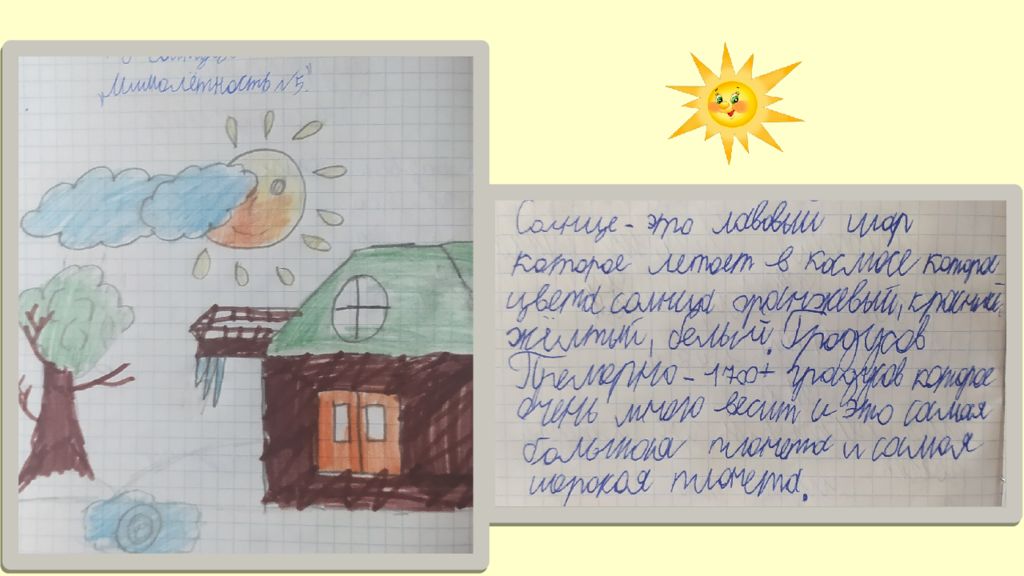 "Мимолётность №5"
Солнце - это лавовый шар
которое летает в космосе которое
цвета солнца оранжевый, красный,
жёлтый, белый. Градусов
Премэрно - 1700+ градусов которое
очень много весит и это самая
большая планета и самая
шорокая планета.